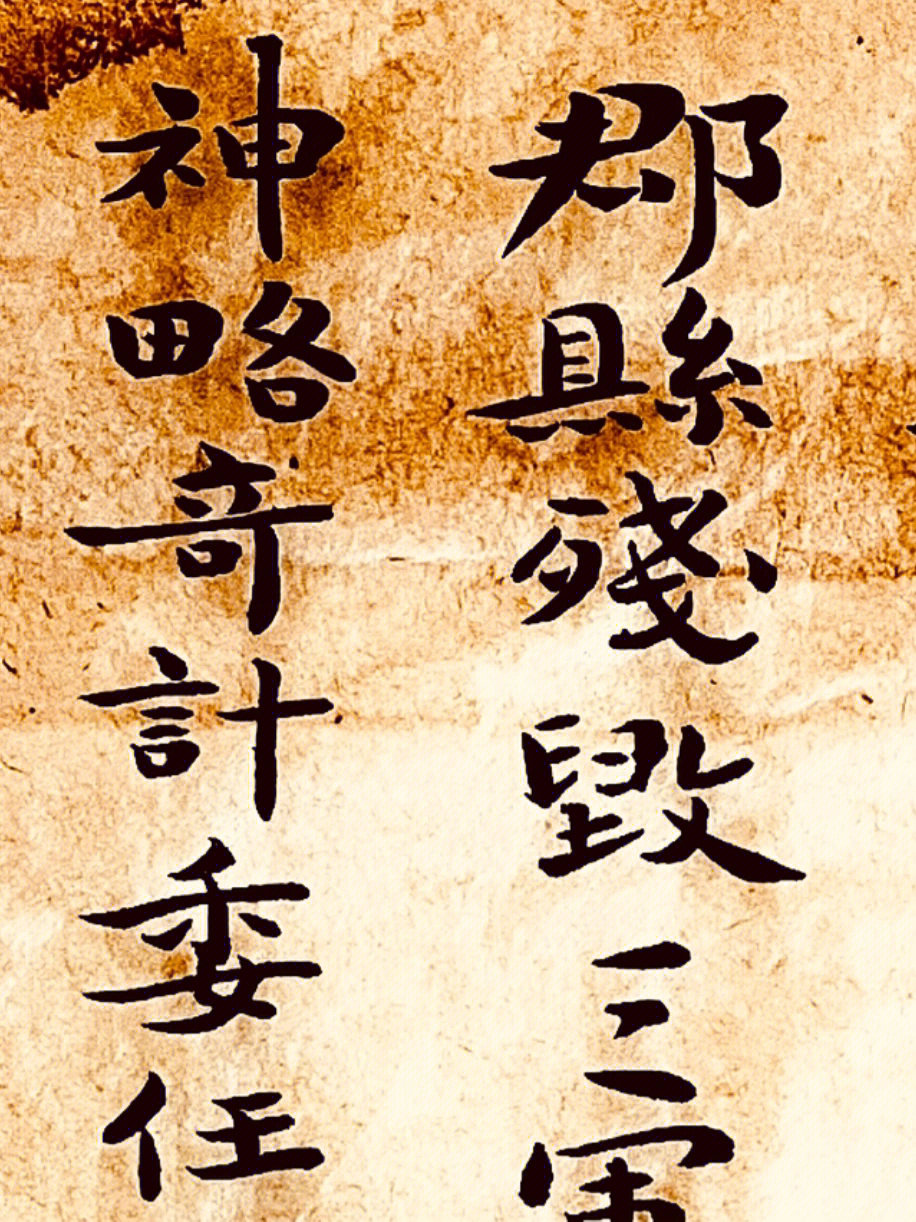 郡縣殘毀三軍
神略奇計委任